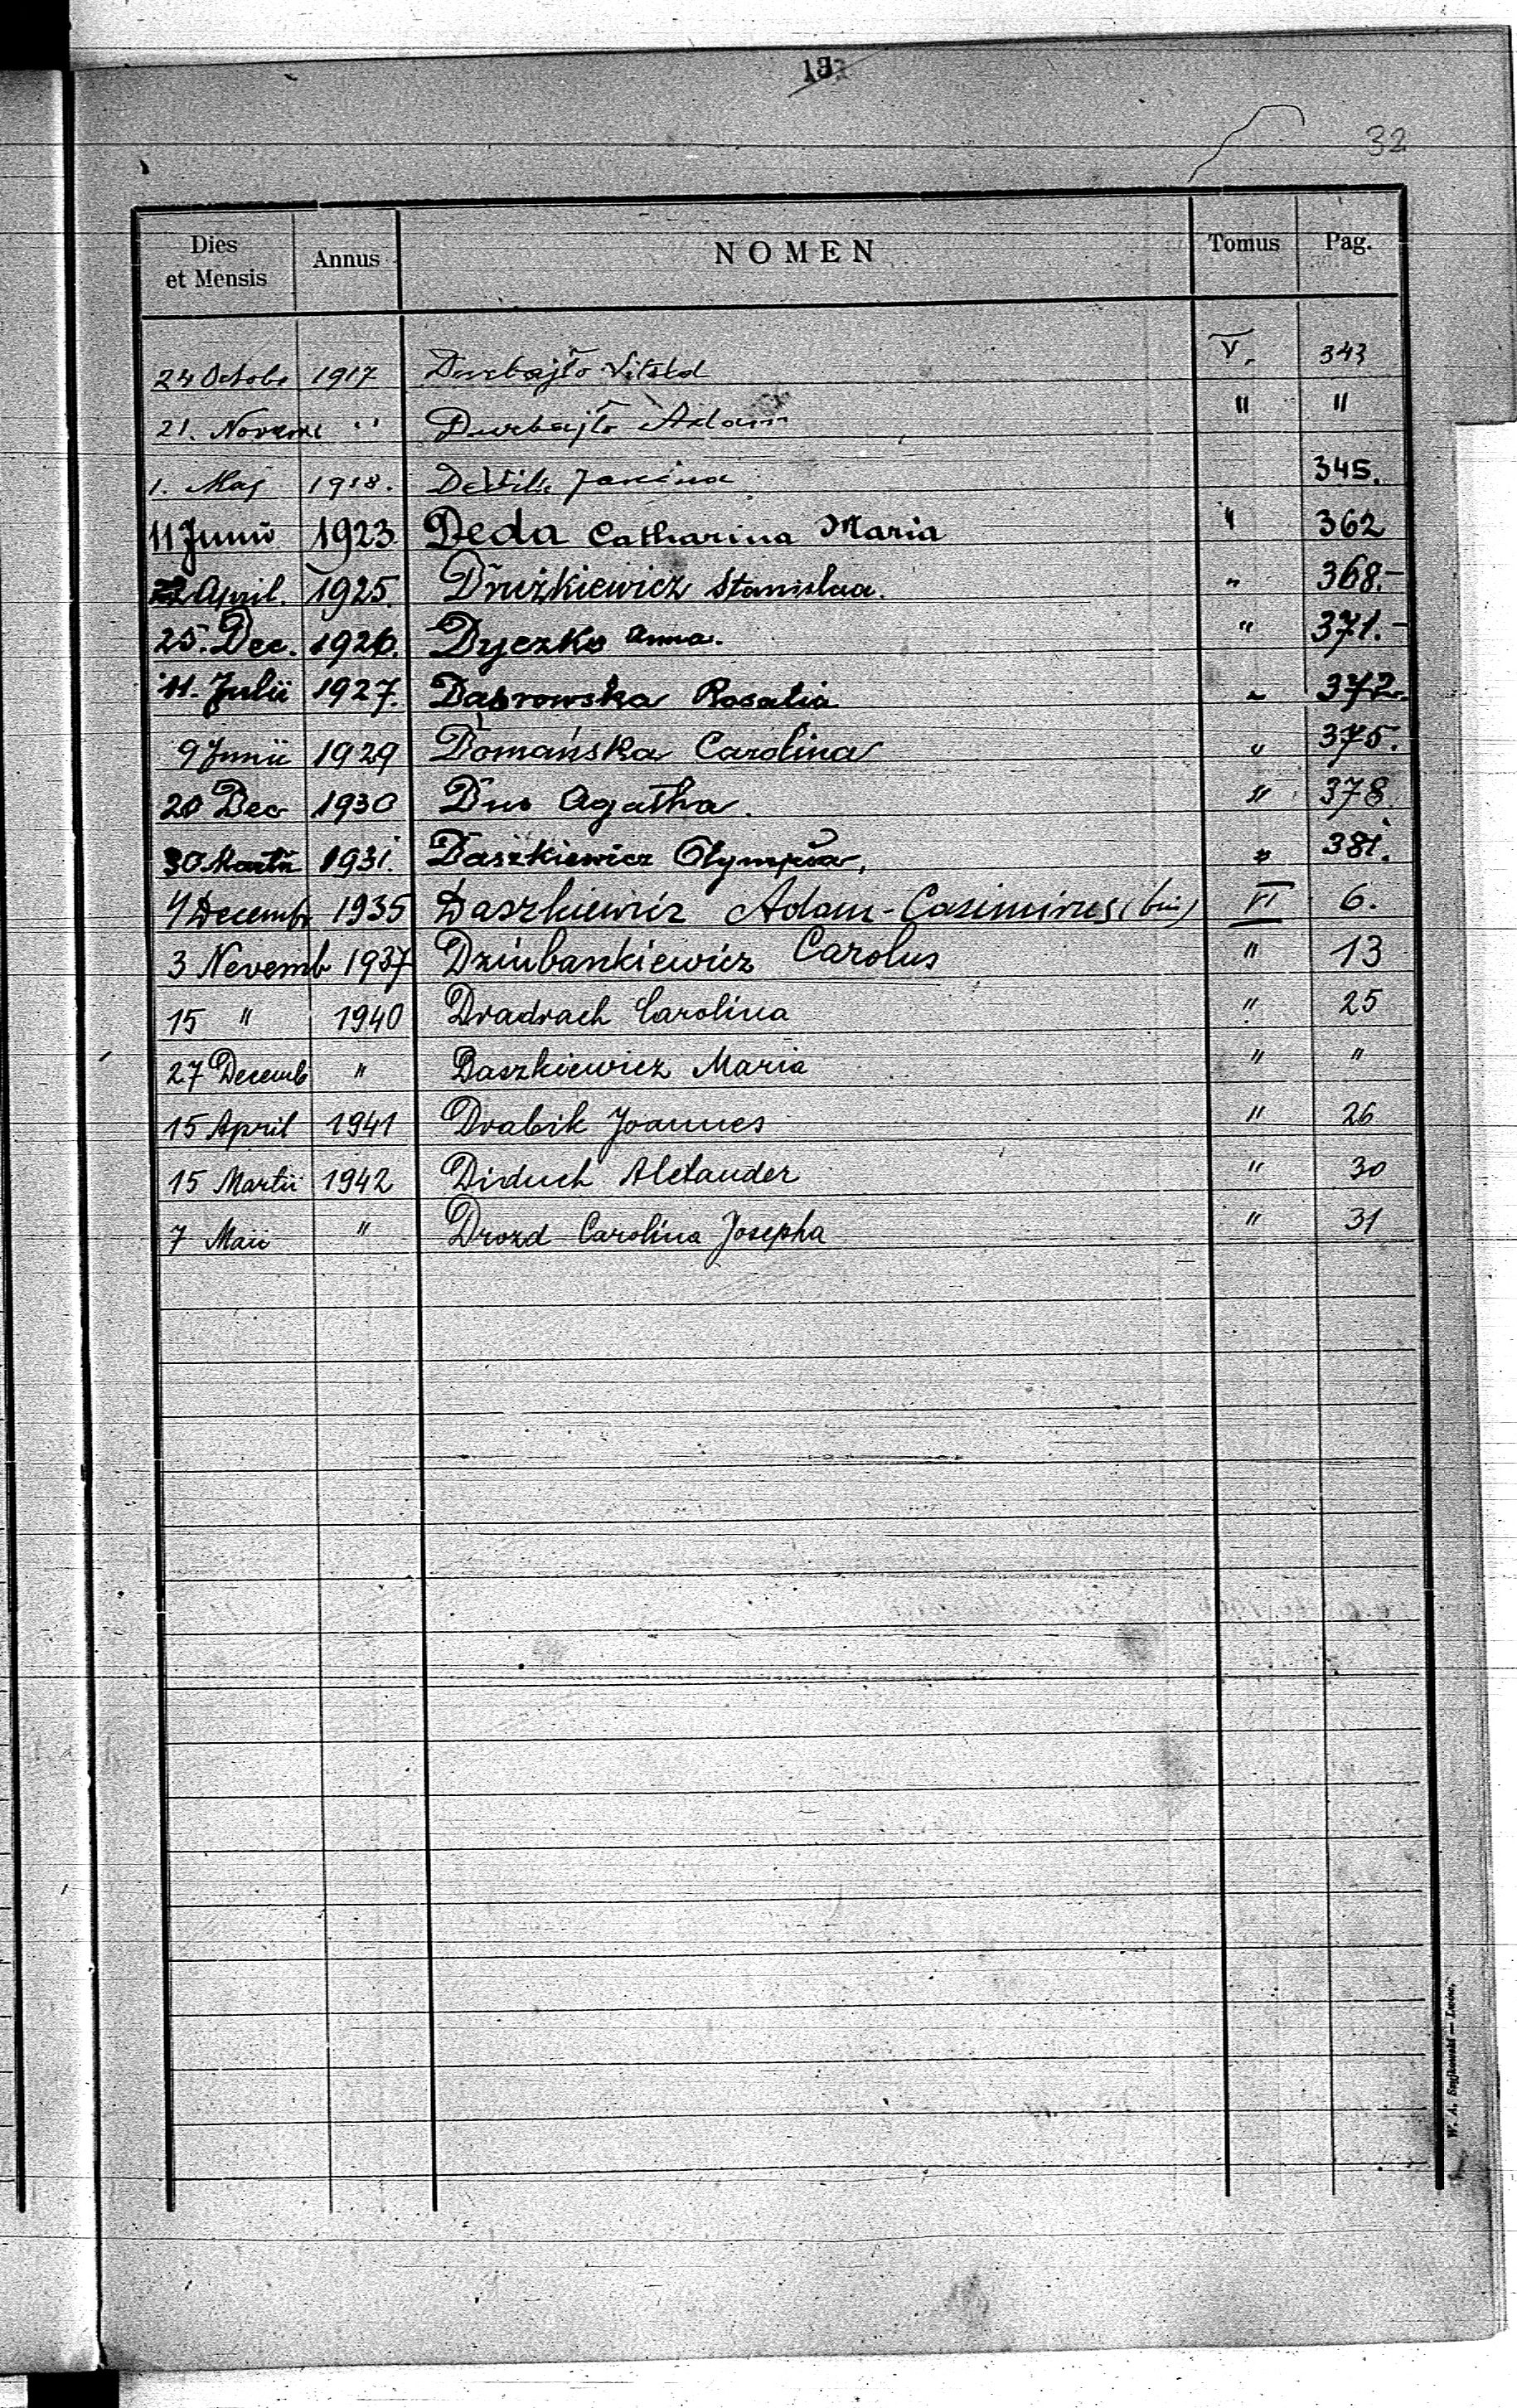 32
Dies et Mensis Annus NOMEN Tomus Pag.
24 Octobr 1917 Durbajło Witold V. 343
21. Novem " Durbajło Adam " "
1. Maj 1918. Janina 345.
11 Junii 1923 Deda Catharina Maria " 362
22 April. 1925. Drużkiewicz Stanislaa. " 368.-
25. Dec. 1926. Dyczko Anna. " 371.-
11. Julii 1927. Dabrowska Rosalia " 372.
9 Junii 1929 Domańska Carolina " 375.
20 Dec 1930 Dus Agatha. " 378
30 Martii 1931. Daszkiewicz Olympia, " 381.
4 Decemb 1935 Daszkiewicz Adam-Casimirus VI 6.
3 Novemb 1937 Dziubankiewicz Carolus " 13
15 " 1940 Dradrach Carolina " 25
27 Decemb " Daszkiewicz Maria " "
15 April 1941 Drabik Joannes " 26
15 Martii 1942 Dirduch Alexander " 30
7 Maii " Drozd Carolina Josepha " 31
W. A. Szyjkowski — Lwów.